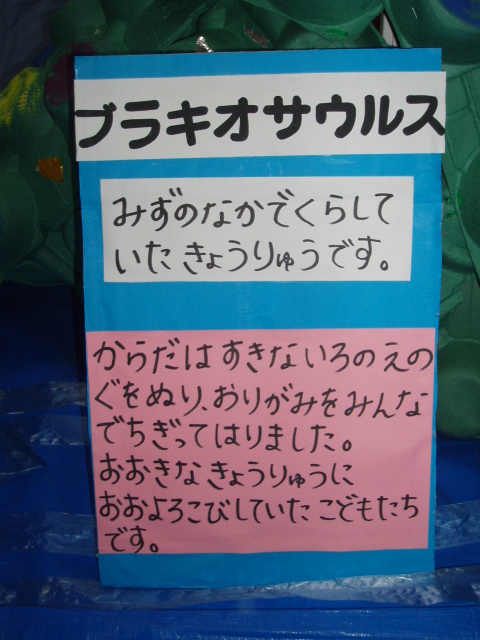 ブラキオサウルス
みずのなかでくらして
いたきょうりゅうです。
からだはすきないろのえの
ぐをぬり、おりがみをみんな
でちぎってはりました。
おおきなきょうりゅうに
おおよろこびしていたこどもたち
です。